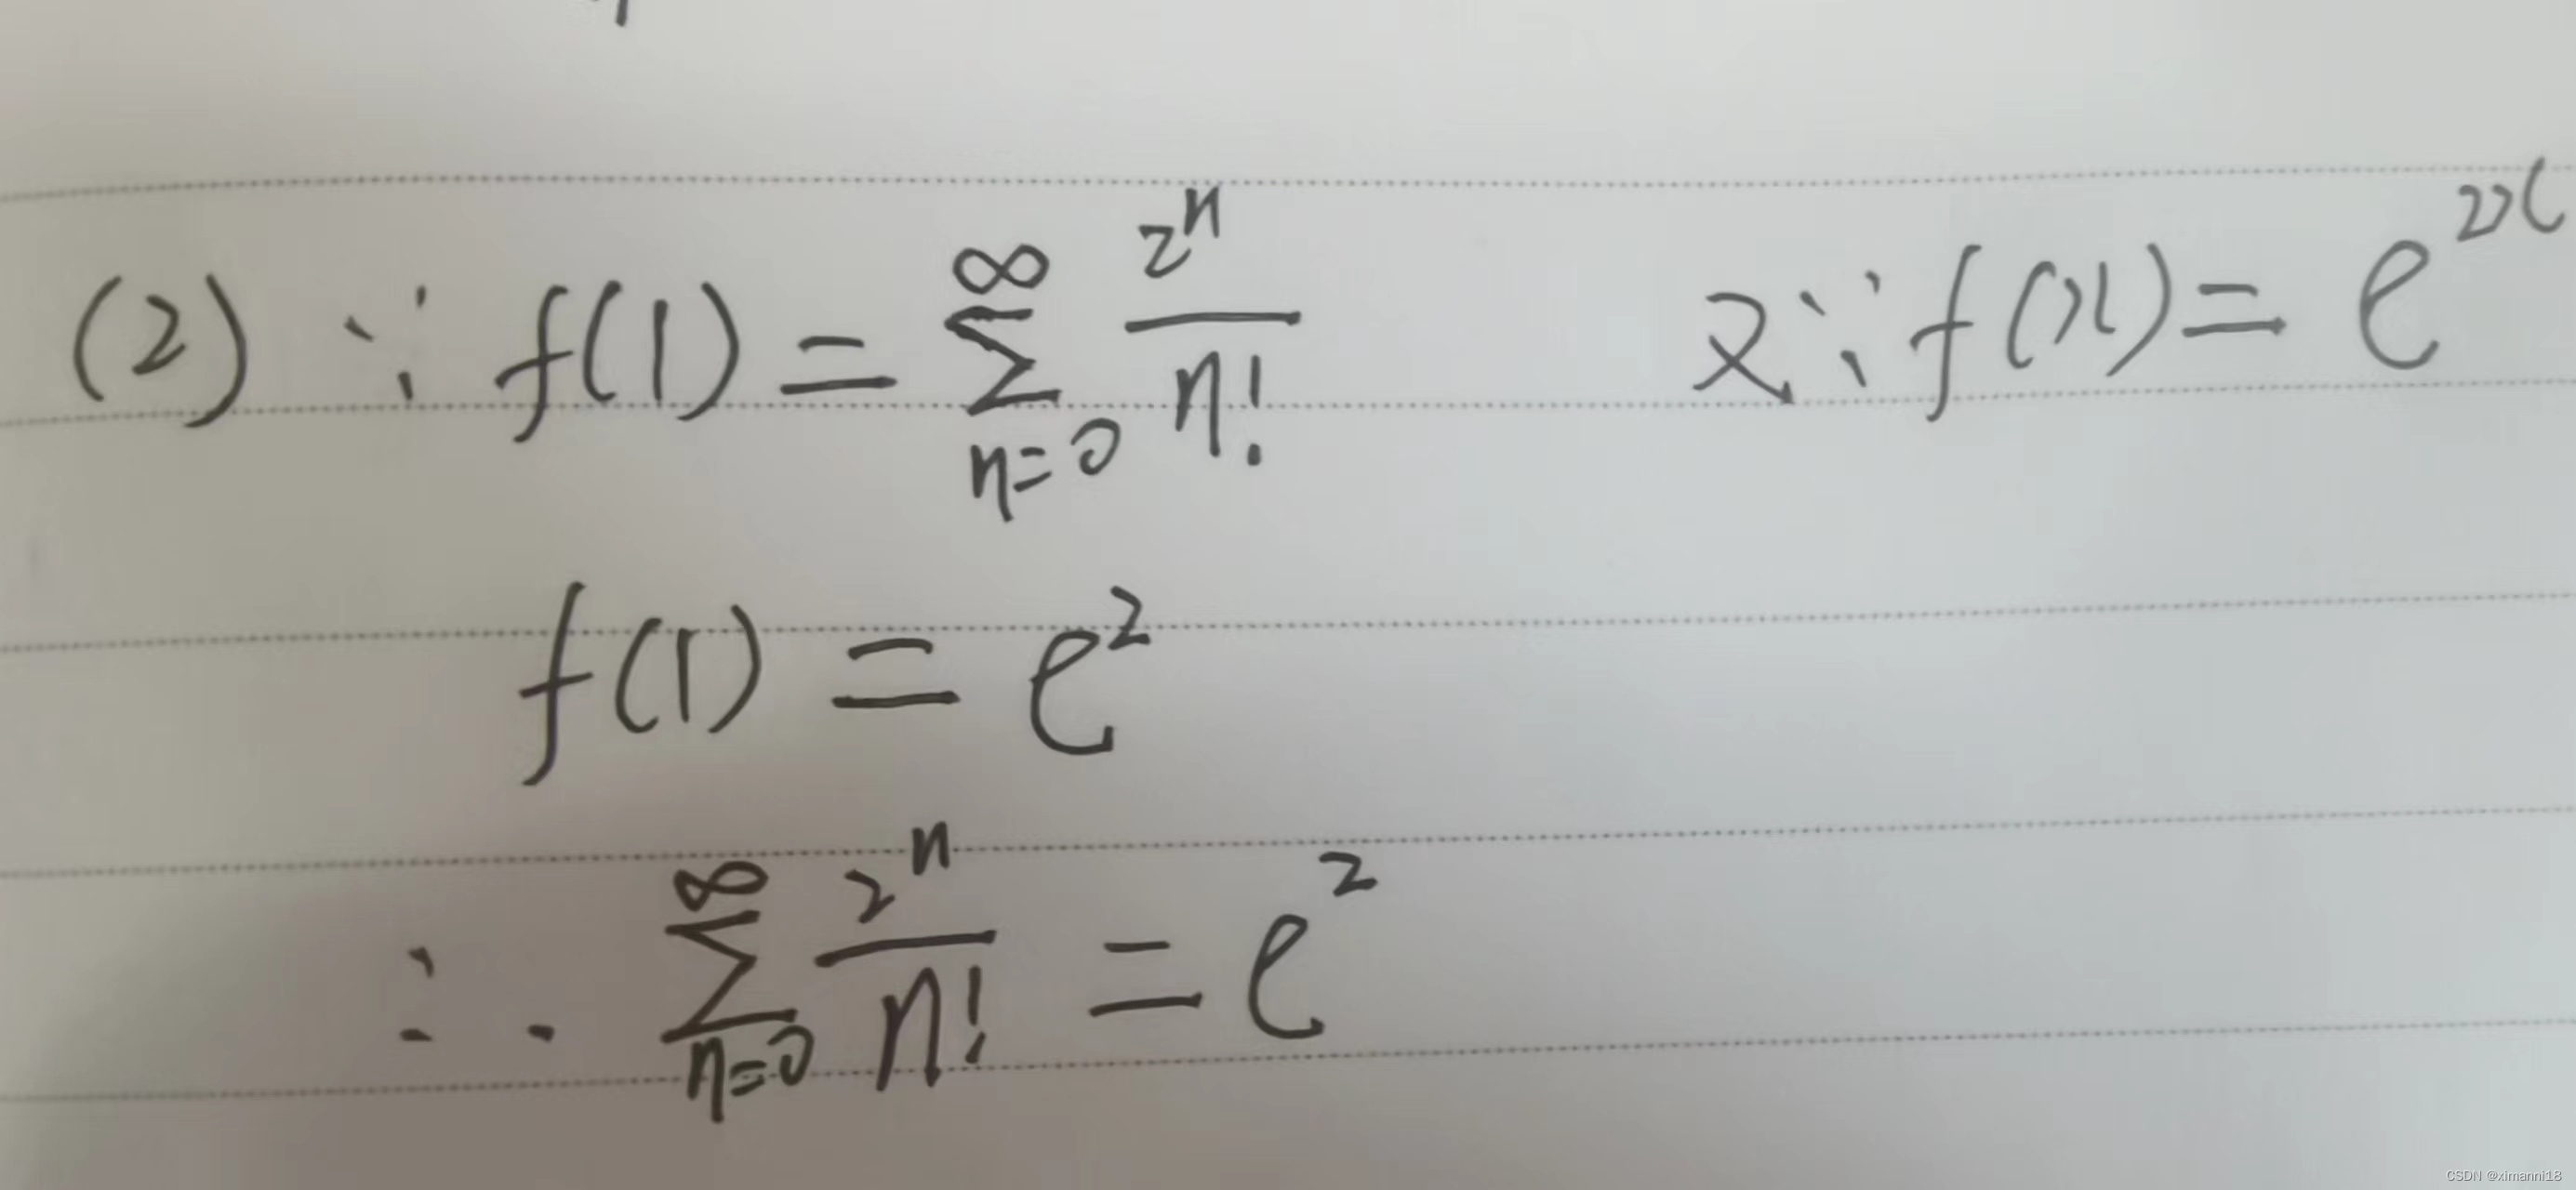 (2) ∵ f(1) = ∑_{n=0}^{∞} 2^n / n! 又∵ f(x) = e^{2x}
f(1) = e^2
∴ ∑_{n=0}^{∞} 2^n / n! = e^2
CSDN @ximanni18